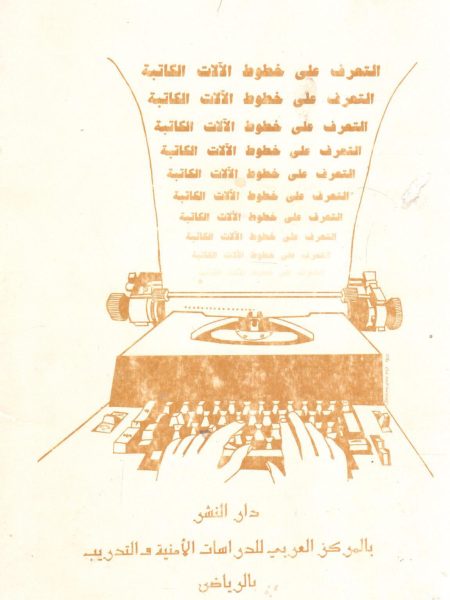 التعرف على خطوط الآلات الكاتبة
التعرف على خطوط الآلات الكاتبة
التعرف على خطوط الآلات الكاتبة
التعرف على خطوط الآلات الكاتبة
التعرف على خطوط الآلات الكاتبة
التعرف على خطوط الآلات الكاتبة
التعرف على خطوط الآلات الكاتبة
التعرف على خطوط الآلات الكاتبة
التعرف على خطوط الآلات الكاتبة
التعرف على خطوط الآلات الكاتبة
دار النشر
بالمركز العربي للدراسات الأمنية والتدريب
بالرياض